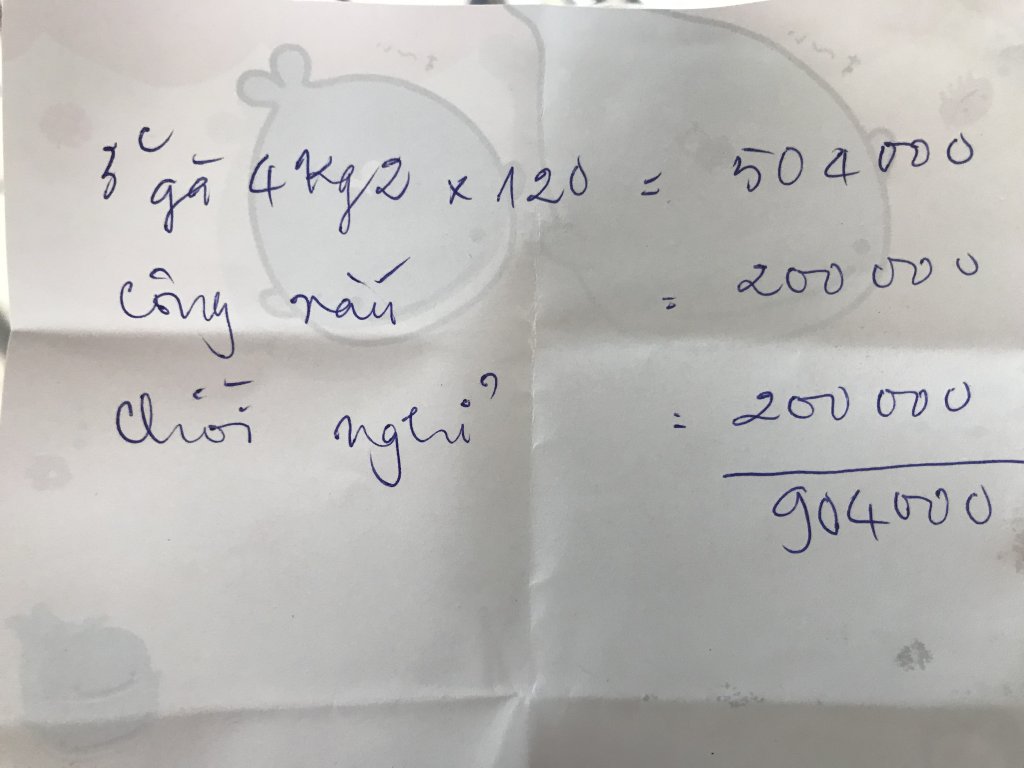 3c gà 4kg2 x 120 = 504000
Công nấu = 200 000
Chòi nghỉ = 200 000
904000